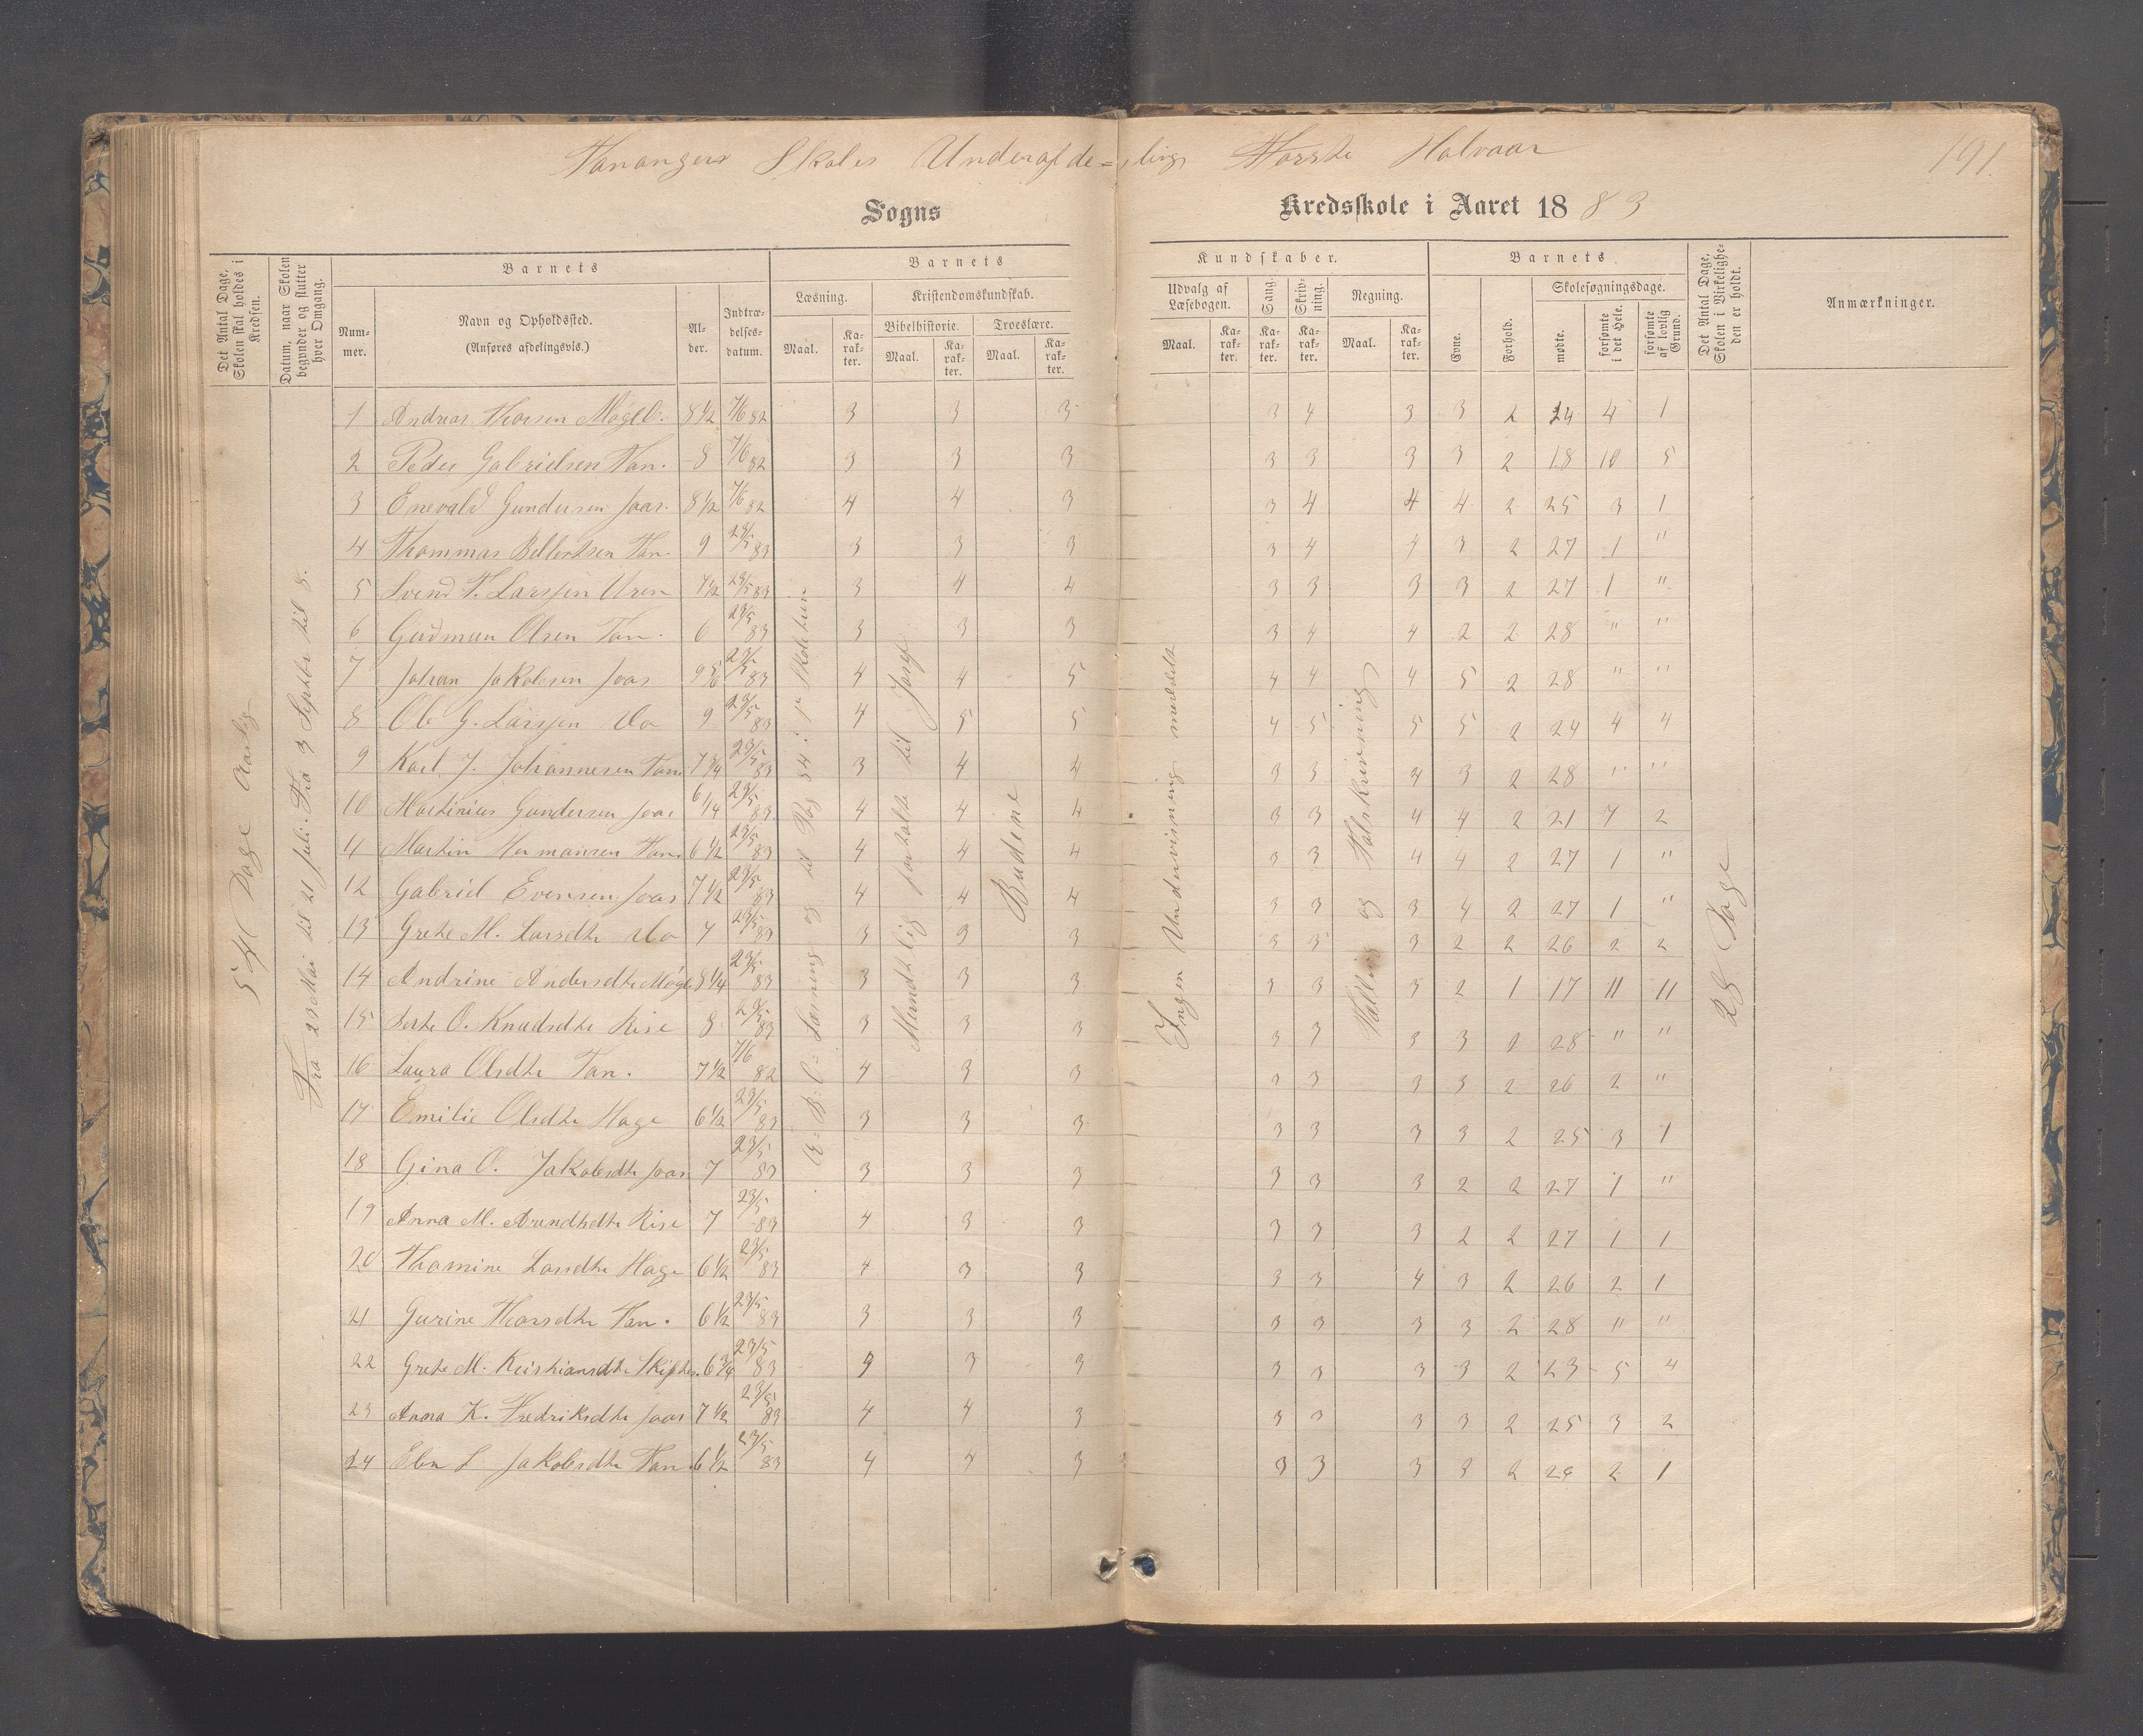 Tanangers Skoles Underafde=ling Første Halvaar
191.
Sogns Kredsskole i Aaret 1883
Det Antal Dage, Skolen skal holdes i Kredsen.
Datum, naar Skolen begynder og slutter hver Omgang.
Barnets
Barnets
Kundskaber.
Barnets
Det Antal Dage, Skolen i Virkelighe-den er holdt.
Anmærkninger.
Num-mer.
Navn og Opholdssted. (Anføres afdelingsvis.)
Al-der.
Indtræ-delses-datum.
Læsning.
Kristendomskundskab.
Bibelhistorie.
Troeslære.
Maal.
Ka-rak-ter.
Maal.
Ka-rak-ter.
Maal.
Ka-rak-ter.
Udvalg af Læsebogen.
Sang.
Skriv-ning.
Regning.
Maal.
Ka-rak-ter.
Ka-rak-ter.
Ka-rak-ter.
Maal.
Ka-rak-ter.
Evne.
Forhold.
Skolesøgningsdage.
mødte.
forsømte i det Hele.
forsømte af lovlig Grund.
54 Dage Aarlig
Fra 23 Mai til 21 Juli. Fra 3 Septbr til 8.
Læsning og til Pag 34 i
Mundtlig fortalte til Josef
Budene
Ingen Undervisning meddelt
Tælling og Talskrivning
28 Dage
1 Andreas Thorsen Møgeb. 8 1/2 7/6 82 3 3 3 3 4 3 3 2 24 4 1
2 Peder Gabrielsen Tan. 8 7/6 82 3 3 3 3 3 3 3 2 18 10 5
3 Enevald Gundersen Joar. 8 1/2 7/6 82 4 4 3 3 4 4 4 2 25 3 1
4 Thommas Tan. 9 23/5 83 3 3 3 3 4 4 3 2 27 1 "
5 Svend T. Larssen 7 1/2 23/5 83 3 4 4 3 3 3 3 2 27 1 "
6 Gudmun Olsen Tan. 6 23/5 83 3 3 3 3 4 4 2 2 28 " "
7 Johan Jakobsen Joar 9 5/6 23/5 83 4 4 5 4 4 4 5 2 28 " "
8 Ole G. Larssen do 9 23/5 83 4 5 5 4 5 5 5 2 24 4 4
9 Karl J. Johannesen Tan. 7 3/4 23/5 83 3 4 4 3 3 4 3 2 28 " "
10 Martinius Gundersen Joar 6 1/4 23/5 83 4 4 4 3 3 4 4 2 21 7 2
11 Martin Hermansen Tan. 6 1/2 23/5 83 4 4 4 3 3 4 4 2 27 1 "
12 Gabriel Evensen Joar 7 1/2 23/5 83 4 4 4 3 3 3 4 2 27 1 "
13 Grete M. Larsdtr do 7 23/5 83 3 3 3 3 3 3 2 2 26 2 2
14 Andrine Andersdtr Møgb 8 1/4 23/5 83 3 3 3 3 3 3 2 1 17 11 11
15 O. Knudsdtr Risa 8 23/5 83 3 3 3 3 3 3 3 2 28 " "
16 Laura Olsdtr Tan. 7 1/2 7/6 82 4 3 3 3 3 3 3 2 26 2 "
17 Emilie Olsdtr Hage 6 1/2 23/5 83 3 3 3 3 3 3 3 2 25 3 1
18 Gina O. Jakobsdtr Joar 7 23/5 83 3 3 3 3 3 3 2 2 27 1 "
19 Anna M. Risa 7 23/5 83 4 3 3 3 3 3 2 2 27 1 1
20 Thomine Larsdtr Hage 6 1/2 23/5 83 4 3 3 3 3 4 3 2 26 2 1
21 Gurine Thorsdtr Tan. 6 1/2 23/5 83 3 3 3 3 3 3 3 2 28 " "
22 Grete M. Kristiansdtr 6 3/4 23/5 83 4 3 3 3 3 3 3 2 23 5 4
23 Anna K. Fredriksdtr Joar 7 1/2 23/5 83 4 4 3 3 3 3 3 2 25 3 2
24 Elen S Jakobsdtr Tan. 6 1/2 23/5 83 4 4 3 3 3 3 3 2 26 2 1